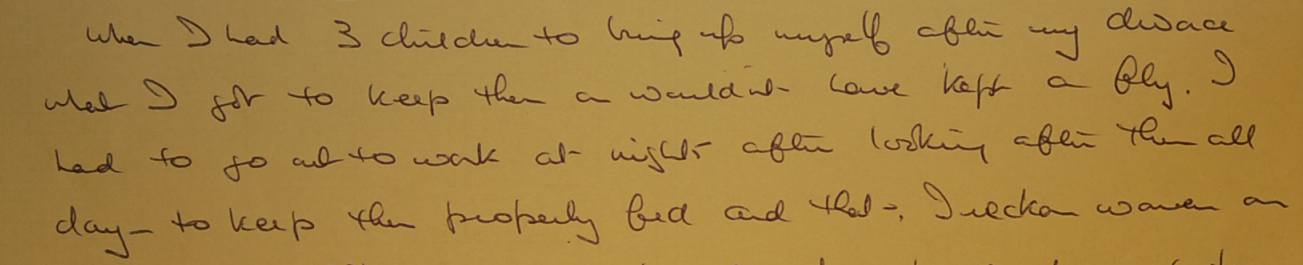 When I had 3 children to bring up myself after my divorce
what I got to keep them on wouldn't have kept a fly. I
had to go out to work at nights after looking after them all
day - to keep them properly fed and that -. I reckon women on